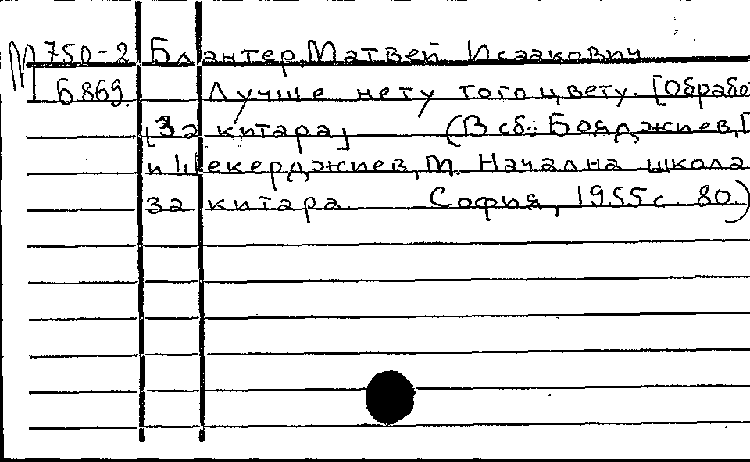 М 750-2 Блантер, Матвей Исаакович
Б869 Лучше нету того цвету. [Обрабо
[За китара] (В сб.: Бояджиев, Г
и Шекерджиев, М. Начална школа
за китара. София, 1955 с. 80.)